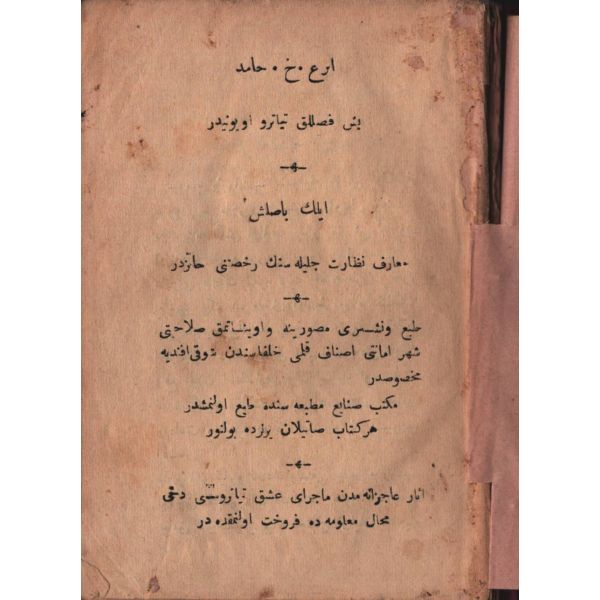 اثر ع . خ . حامد
بش فصللق تیاترو اویونیدر
ایلك باصلش
معارف نظارت جلیله سنك رخصتنی حائزدر
طبع ونشری مصورینه واویناتمق صلاحیتی
شهر امانتی اصناف قلمی خلفاسندن شوقی افندیه
مخصوصدر
مكتب صنایع مطبعه سنده طبع اولنمشدر
هر كتاب صاتیلان یرلرده بولنور
آثار عاجزانه مدن ماجرای عشق تیاتروسی دخی
محال معلومه ده فروخت اولنمقده در